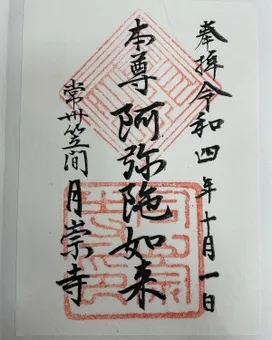 奉拝令和四年十月一日
本尊阿弥陀如来
常州笠間
月崇寺